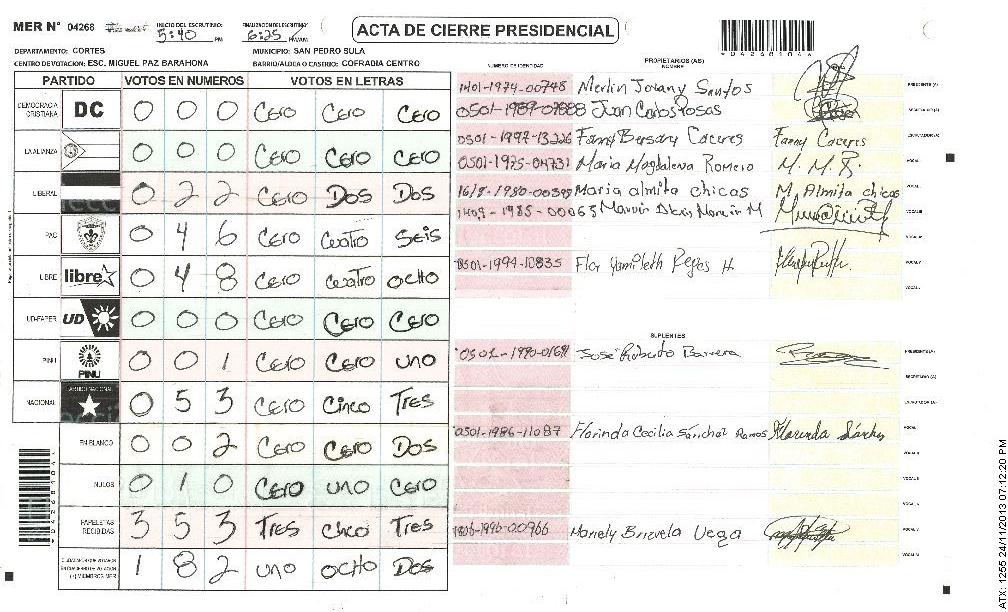 MER N° 04268 INICIO DEL ESCRUTINIO: 5:40 PM FINALIZACION DEL ESCRUTINIO: 6:25 PM/AM ACTA DE CIERRE PRESIDENCIAL
0 4 2 6 8 1 0 4
DEPARTAMENTO: CORTES MUNICIPIO: SAN PEDRO SULA
CENTRO DE VOTACION: ESC. MIGUEL PAZ BARAHONA BARRIO/ALDEA O CASERIO: COFRADIA CENTRO
PARTIDO VOTOS EN NUMEROS VOTOS EN LETRAS
DEMOCRACIA CRISTIANA DC 0 0 0 Cero Cero Cero
LA ALIANZA 0 0 0 Cero Cero Cero
LIBERAL 0 2 2 Cero Dos Dos
PAC 0 4 6 Cero Cuatro Seis
LIBRE libre 0 4 8 Cero Cuatro Ocho
UD-FAPER UD 0 0 0 Cero Cero Cero
PINU PINU 0 0 1 Cero Cero uno
NACIONAL PARTIDO NACIONAL 0 5 3 Cero Cinco Tres
EN BLANCO 0 0 2 Cero Cero Dos
NULOS 0 1 0 Cero uno Cero
PAPELETAS RECIBIDAS 3 5 3 Tres Tres
1 8 2 uno ocho Dos
NUMERO DE IDENTIDAD PROPIETARIOS (AS) NOMBRE
1401-1974-00748 Merlin Jovany Santos PRESIDENTE (A)
Juan Carlos Rosas SECRETARIO (A)
0501-1997-13226 Fanny Bersary Caceres Fanny Caceres ESCRUTADOR (A)
0501-1975-04731 Maria Magdalena Romero M. M. R. VOCAL I
Maria almita chicas M. Almita chicas VOCAL II
1409-1985-00063 VOCAL III
VOCAL IV
0501-1994-10835 Flor Yamileth Reyes H VOCAL V
SUPLENTES
José Roberto Barrera PRESIDENTE (A)
SECRETARIO (A)
ESCRUTADOR (A)
0501-1986-11087 Florinda Cecilia Sánchez Ramos Florinda Sánchez VOCAL I
Mariely Brizuela Vega
0 4 2 6 8 1 0 4
ATX: 1255 24/11/2013 07:12:20 PM